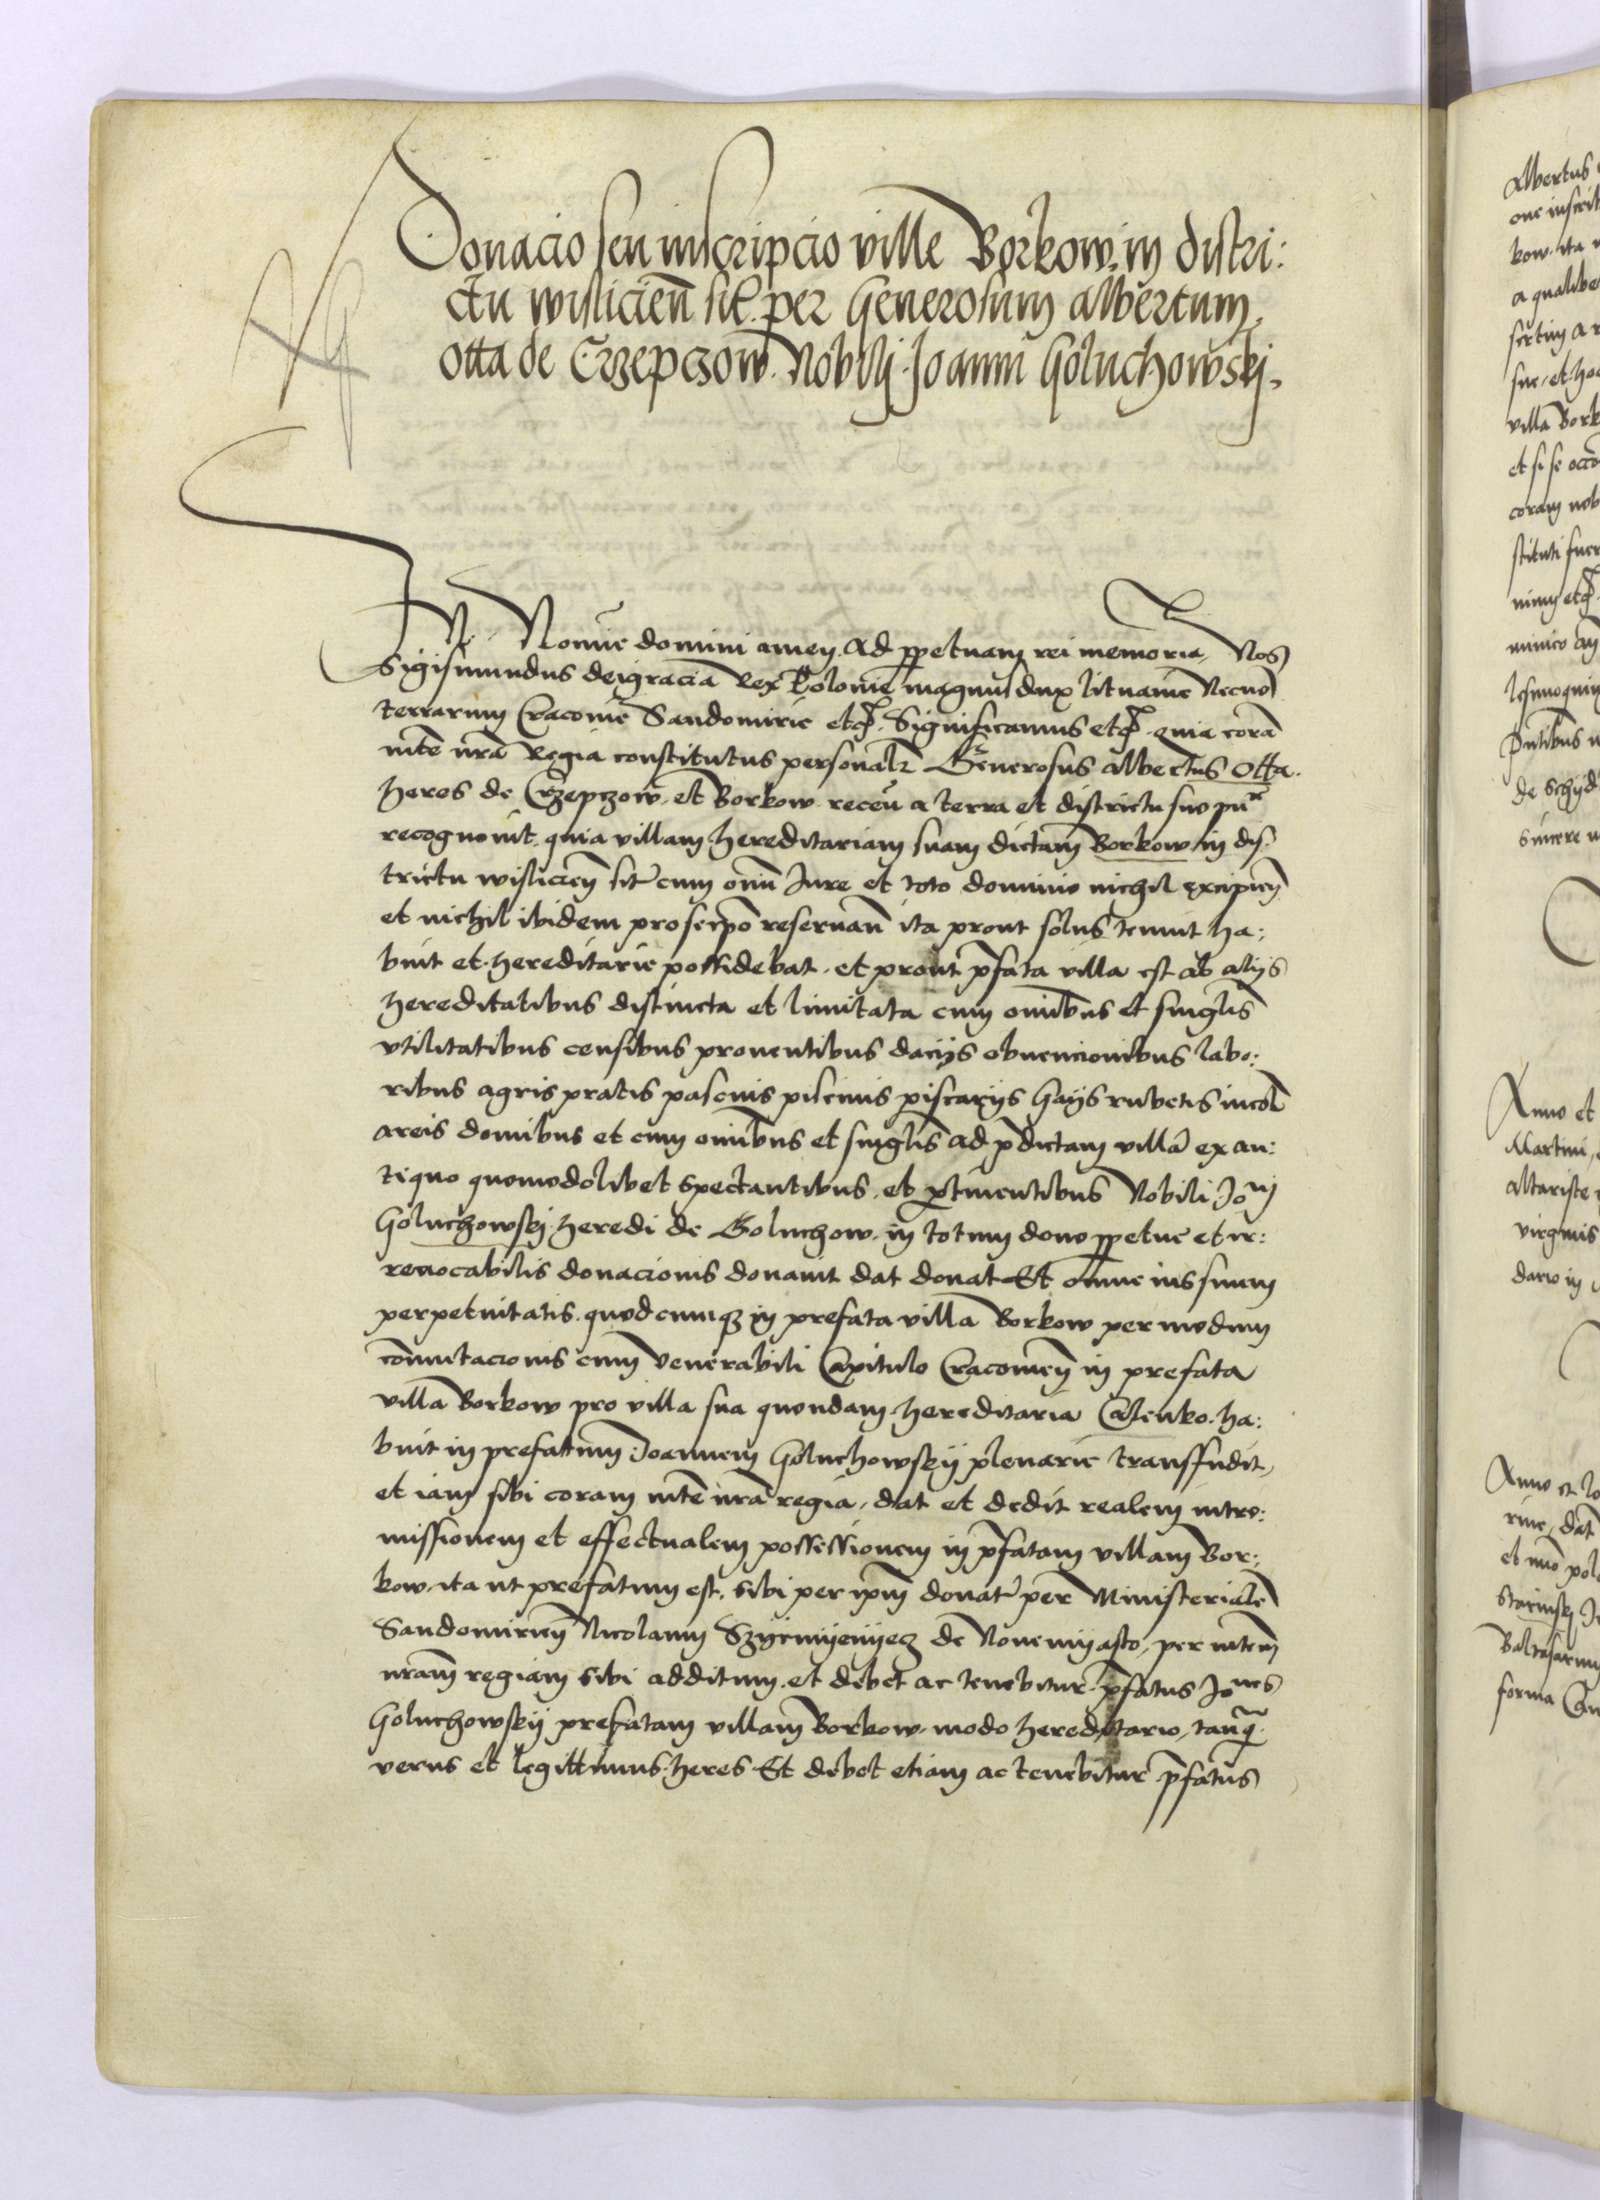 Donacio seu inscripcio ville Borkow in distri:
ctu wislicien̄ sit̃. per Generosum Albertum
Otta de Crzepczow Nobili Joanni Goluchowskj.
IN Nomine domini amen. Ad ppetuam rei memoriā, Nos
Sigismundus dei gracia Rex Polonie magnus dux lituanie Necno
terrarum Cracovie Sandomirie etc̃. Significamus etc̃. quia corā
mte nr̄a Regia constitutus personalr Generosus albertus Otta.
heres de Crzepczow et Borkow receñ a terra et districtu suo
recognovit. quia villam hereditariam suam dictam Borkow in dis:
trictu wislicien̄ sit̃ cum omni Jure et toto dominio nichil excipien̄
et nichil ibidem pro seipō reservan̄ ita prout solus tenuit ha:
buit et hereditarie possidebat. et prout p̄fata villa est ab alijs
hereditatibus distincta et limitata cum omībus et singlis
utilitatibus censibus proventibus dacijs obvencionibus labo:
ribus agris pratis pascuis piscinis piscarijs Gays rubetis incol
areis domibus et cum omībus et singlis ad p̄dictam villā ex an:
tiquo quomodolibet spectantibus. et ptinentibus Nobili Joni
Goluchowskj heredi de Goluchow. in totum dono ppetue et ir:
revocabilis donacionis donavit dat donat Et omne ius suum
perpetuitatis. quodcumqz in prefata villa Borkow per modum
cōmutacionis cum Venerabili Capitulo Cracovien̄ in prefata
villa Borkow pro villa sua quondam hereditaria ha:
buit in prefatum Joannem Goluchowskij plenarie transffudit,
et iam sibi coram mte nr̄a regia, dat et dedit realem intro:
missionem et effectualem possessionem in p̄fatam villam Bor:
kow. ita ut prefatum est. sibi per ipm̄ donat̃ per Ministerialē
Sandomirien̄ Nicolaum de Novemyasto, per mtem
nr̄am regiam sibi additum. et debet ac tenebitur p̄fatus Jones
Goluchowskij prefatam villam Borkow. modo hereditario, tanq̄
verus et legittimus heres Et debet etiam ac tenebitur p̄fatus
Anno et
Martini,
altariste
virginis